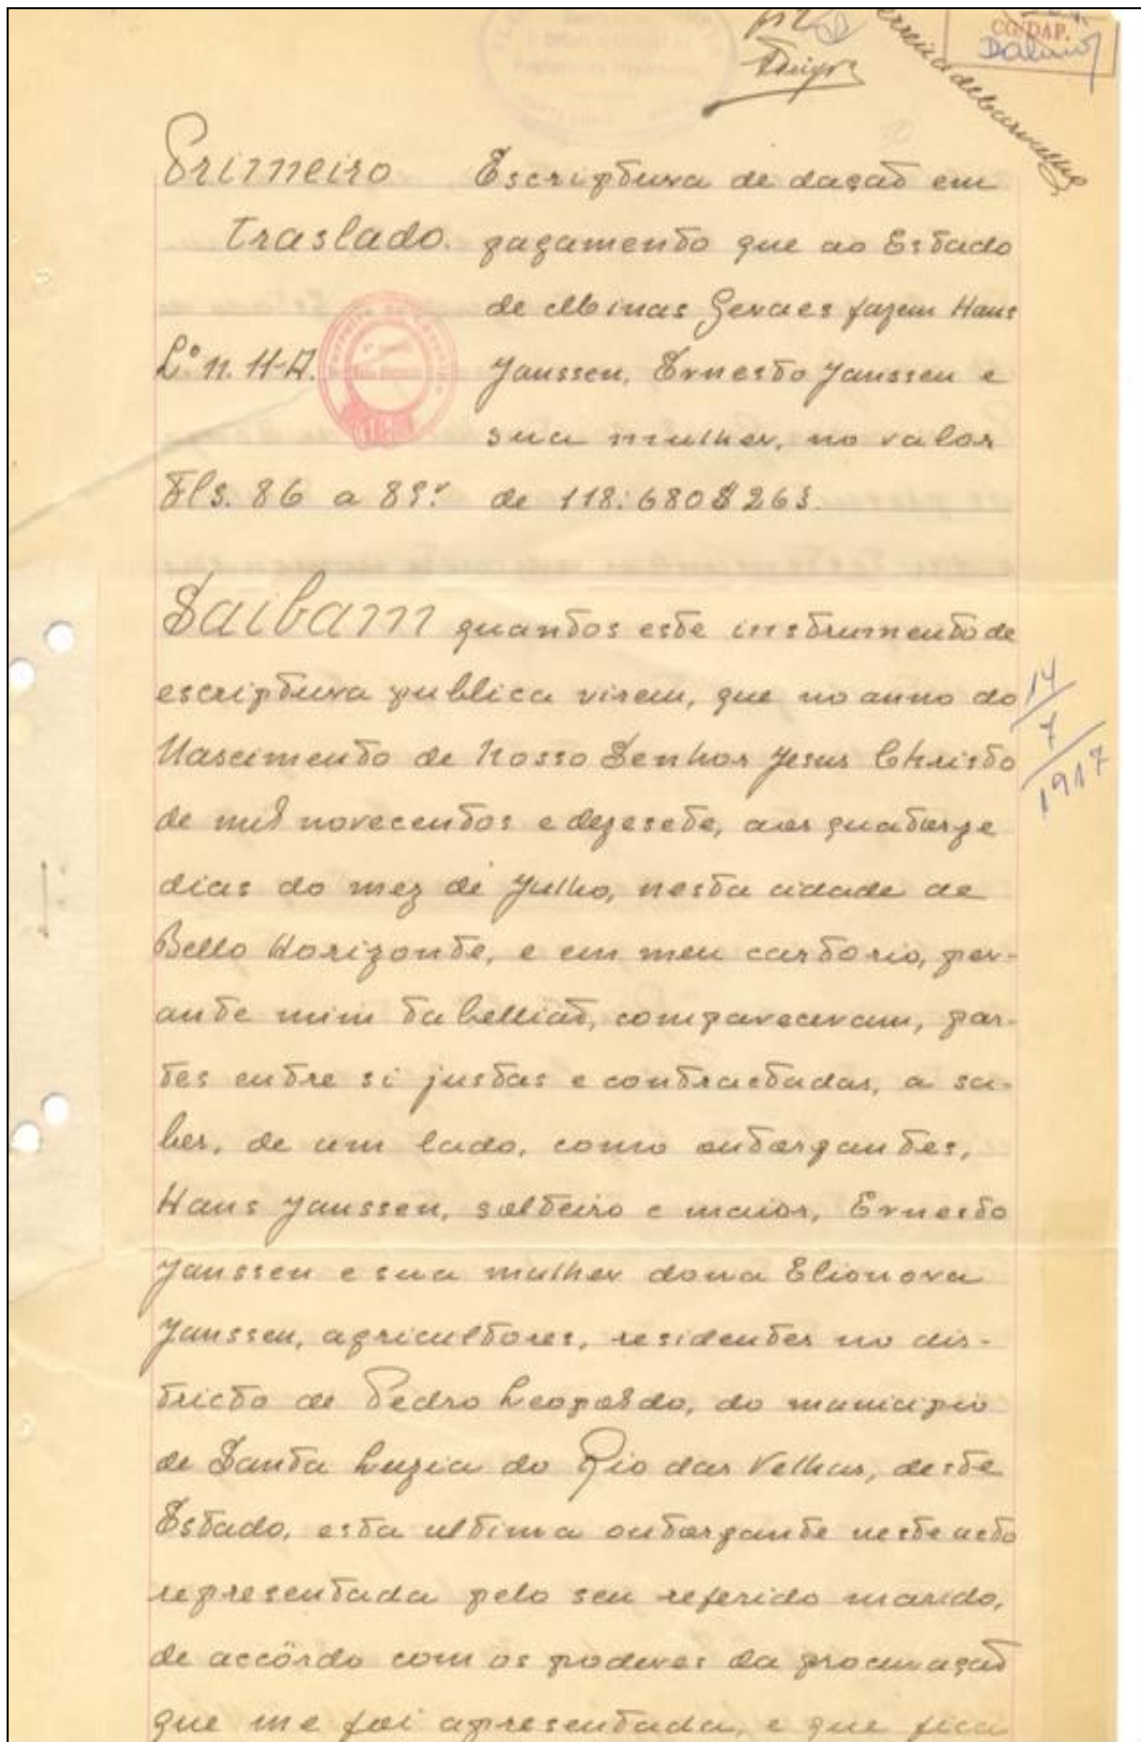 CG/DAP.
Primeiro Escriptura de dação em
traslado. pagamento que ao Estado
de Minas Geraes fazem Hans
L.º n. 11-A. Janssen, Ernesto Janssen e
sua mulher, no valor
Fls. 86 a 89v. de 118:680$263.
Saibam quantos este instrumento de
escriptura publica virem, que no anno do
14/7/1917
Nascimento de Nosso Senhor Jesus Christo
de mil novecentos e dezesete, aos quatorze
dias do mez de Julho, nesta cidade de
Bello Horizonte, e em meu cartorio, per-
ante mim tabellião, compareceram, par-
tes entre si justas e contractadas, a sa-
ber, de um lado, como outorgantes,
Hans Janssen, solteiro e maior, Ernesto
Janssen e sua mulher dona Elionora
Janssen, agricultores, residentes no dis-
tricto de Pedro Leopoldo, do municipio
de Santa Luzia do Rio das Velhas, deste
Estado, esta ultima outorgante neste acto
representada pelo seu referido marido,
de accôrdo com os poderes da procuração
que me foi apresentada, e que fica